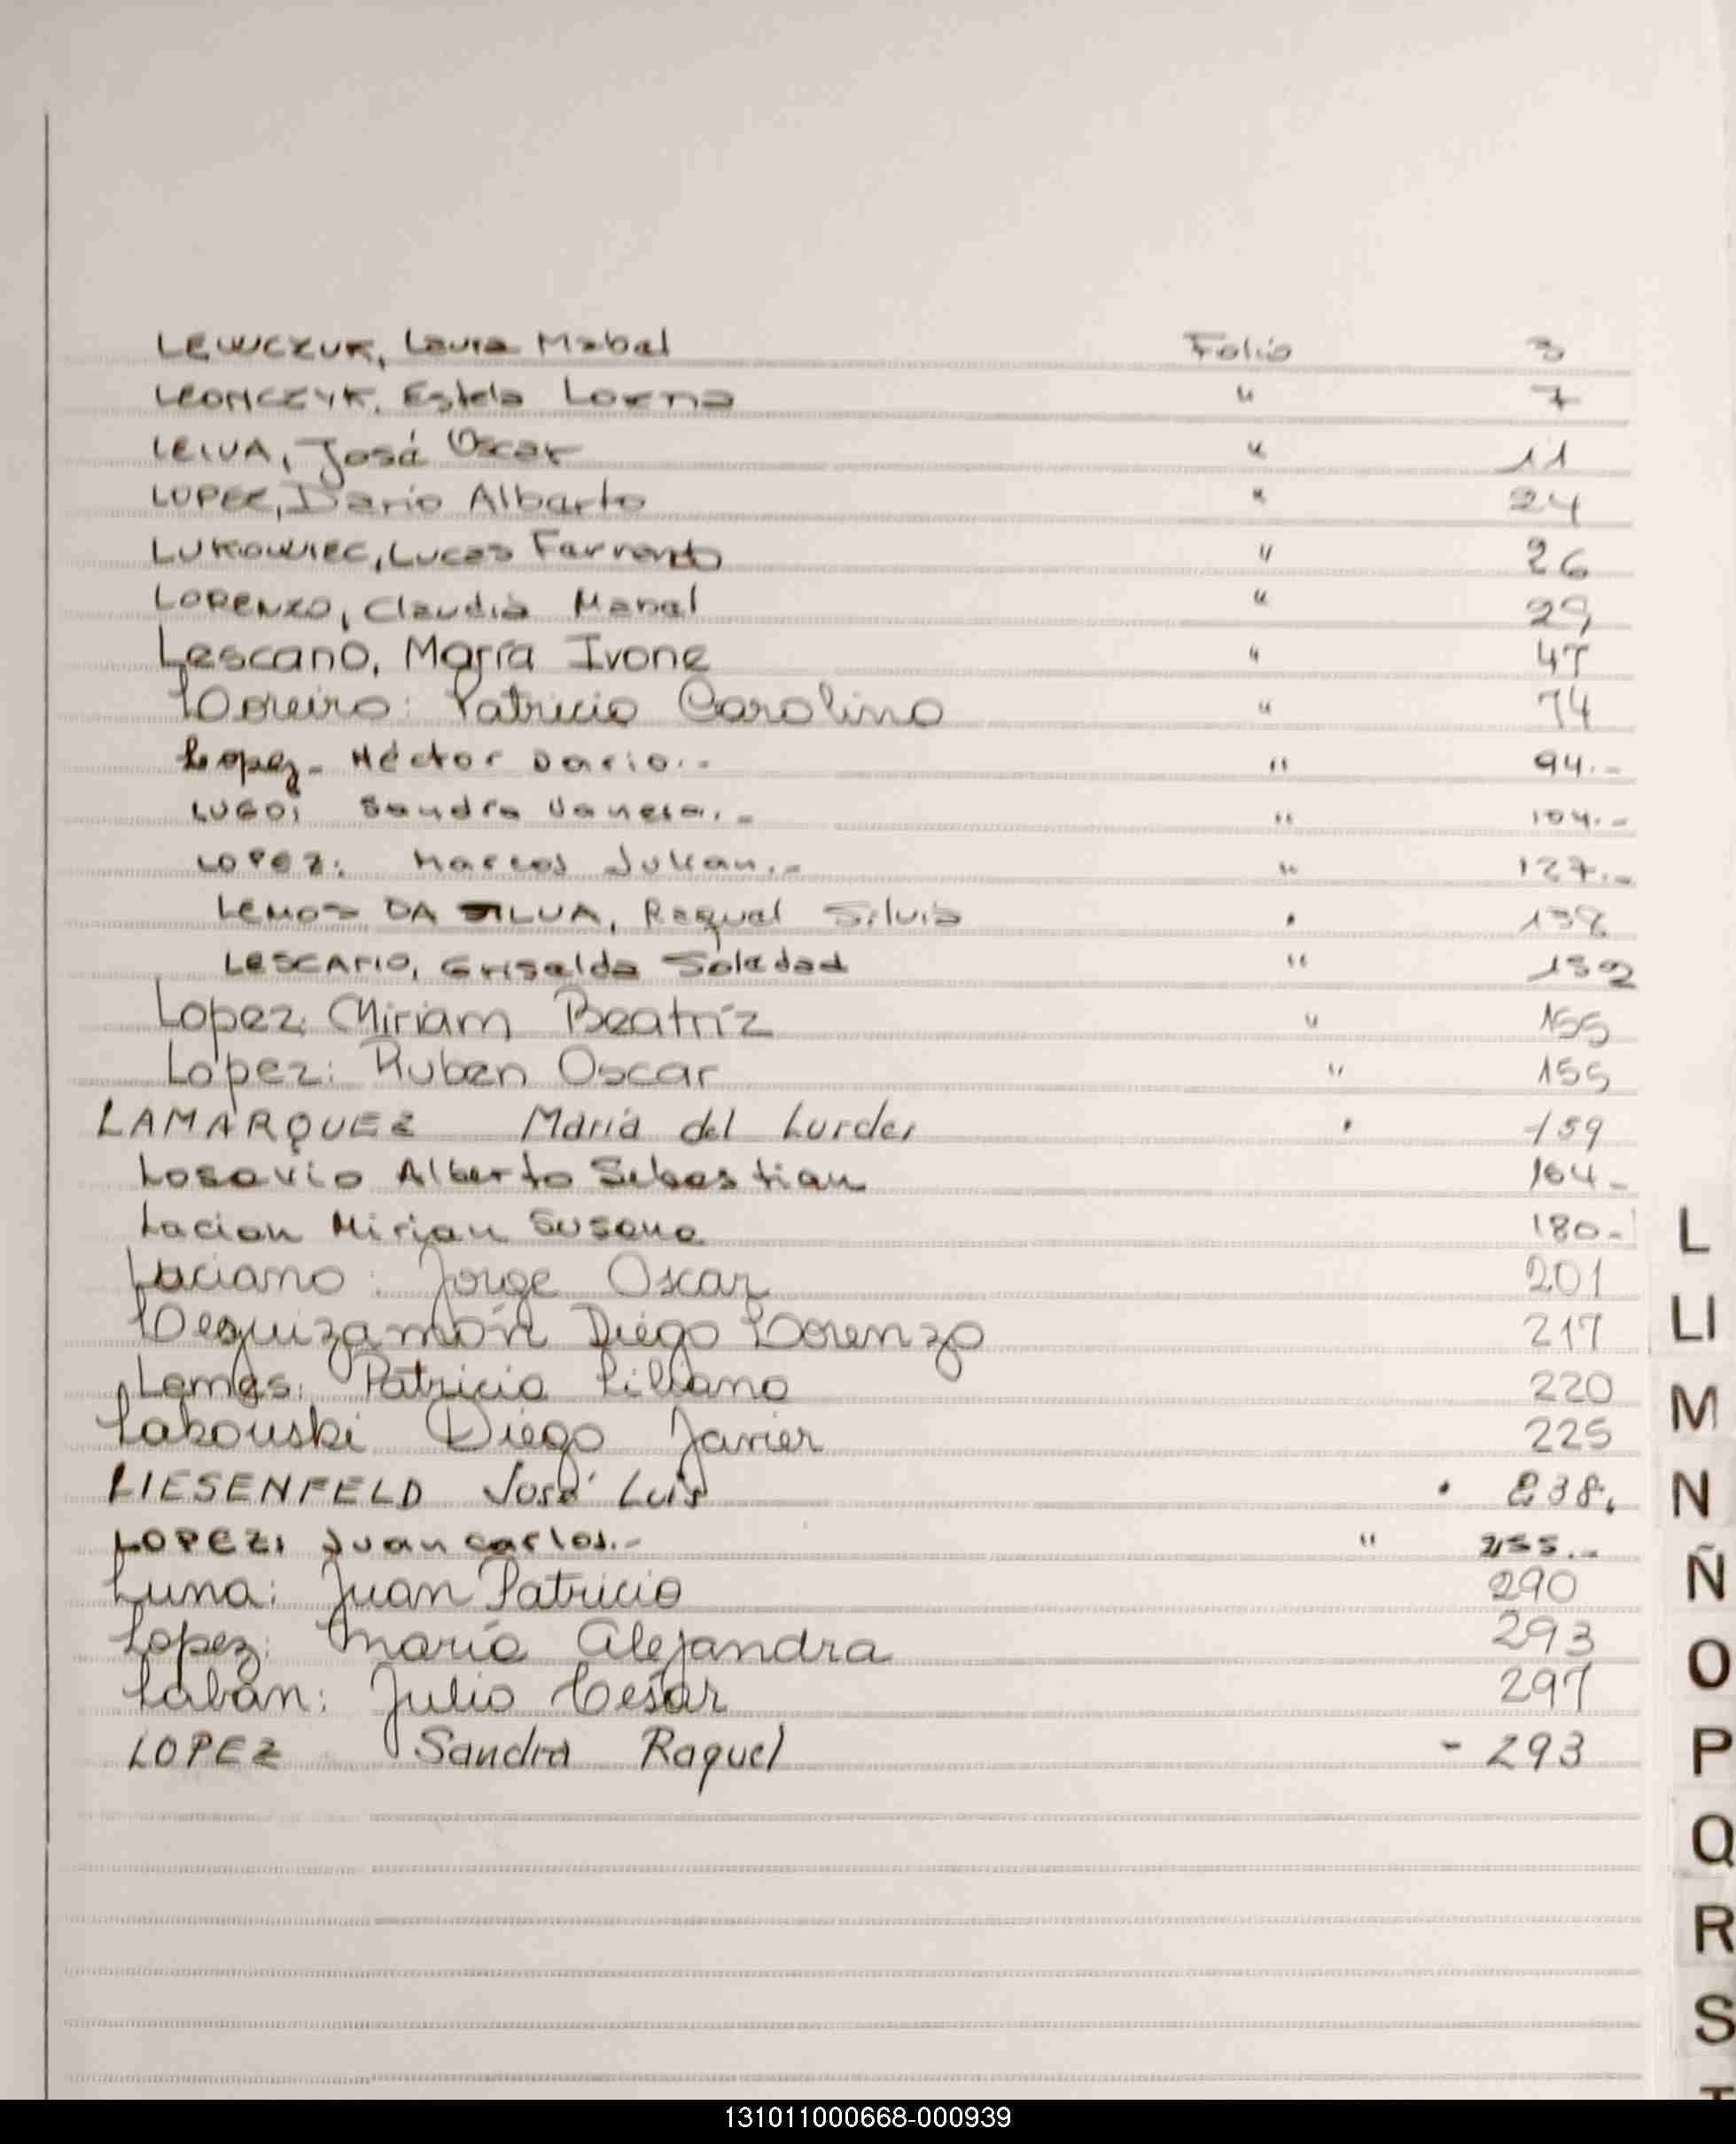 LEWCZUK, Laura Mabel Folio 3
LEONCZYK, Estela Lorena " 7
LEIVA, José Oscar " 11
LOPEZ, Dario Alberto " 24
LUKOWIEC, Lucas Fernando " 26
LORENZO, Claudia Mabel " 29
Lescano, María Ivone " 47
Loreiro: Patricia Carolina " 74
Lopez- Héctor Dario.- " 94.-
LUGO; Sandra Vanesa.- " 104.-
LOPEZ: Marcos Julian.- " 127.-
LEMOS DA SILVA, Raquel Silvia " 138
LESCANO, Griselda Soledad " 152
Lopez; Miriam Beatríz " 155
Lopez: Ruben Oscar " 155
LAMARQUEZ María del Lurdes " 159
Losavio Alberto Sebastian 164-
Lacion Mirian Susana 180-
Luciano: Jorge Oscar 201
Leguizamón Diego Lorenzo 217
Lemes: Patricia Liliana 220
Lakouski Diego Javier 225
LIESENFELD José Luis " 238.
LOPEZ: Juan Carlos.- " 255.-
Luna: Juan Patricio 290
Lopez: María Alejandra 293
Labán: Julio César 297
LOPEZ Sandra Raquel - 293
L
Ll
M
N
Ñ
O
P
Q
R
S
131011000668-000939